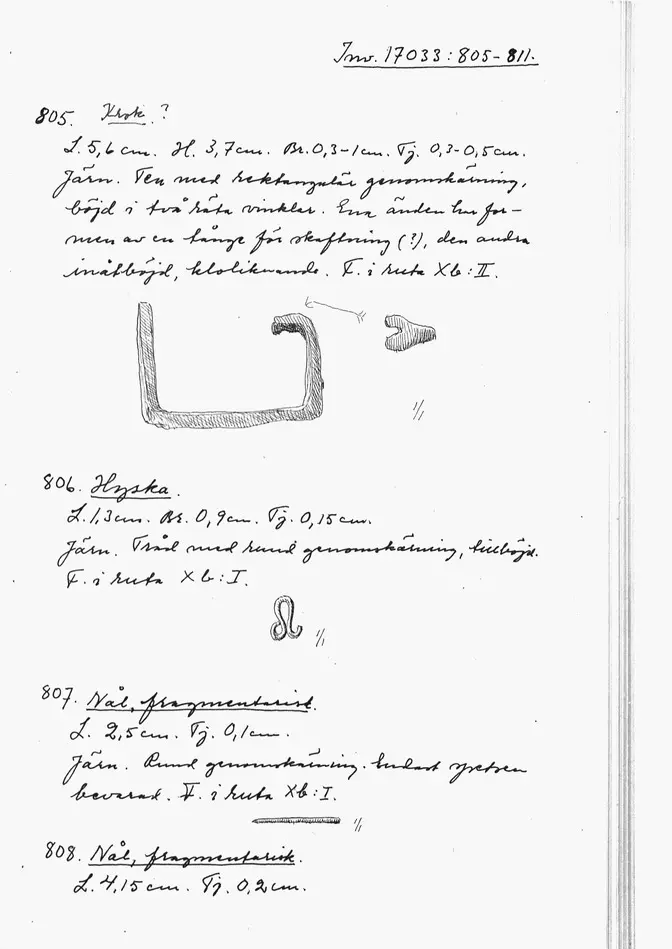 Inv. 17033:805-811.
805. Krok.?
L. 5,6 cm. H. 3,7 cm. Br. 0,3-1 cm. Tj. 0,3-0,5 cm.
Järn. Ten med rektangulär genomskärning,
böjd i två räta vinklar. Ena änden har for-
men av en tånge för skaftning (?), den andra
inåtböjd, kloliknande. F. i ruta Xb:II.
1/1
806. Hyska.
L. 1,3 cm. Br. 0,9 cm. Tj. 0,15 cm.
Järn. Tråd med rund genomskärning, tillböjd.
F. i ruta Xb:I.
1/1
807. Nål, fragmentarisk.
L. 2,5 cm. Tj. 0,1 cm.
Järn. Rund genomskärning. Endast spetsen
bevarad. F. i ruta Xb:I.
1/1
808. Nål, fragmentarisk.
L. 4,15 cm. Tj. 0,2 cm.